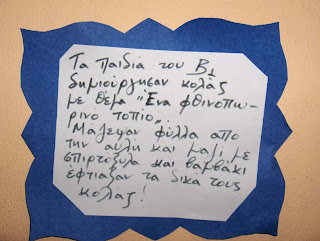 Τα παιδιά του Β1
δημιούργησαν κολάζ
με θέμα "Ένα φθινοπω-
ρινό τοπίο".
Μάζεψαν φύλλα από
την αυλή και μαζί με
σπιρτόξυλα και βαμβάκι
έφτιαξαν τα δικά τους
κολάζ!